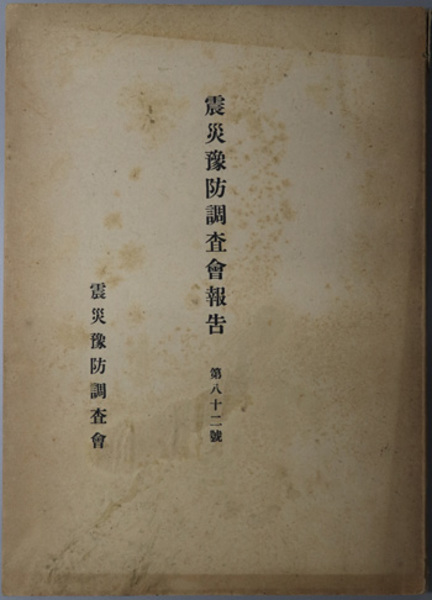 震災豫防調査會報告 第八十二號
震災豫防調査會